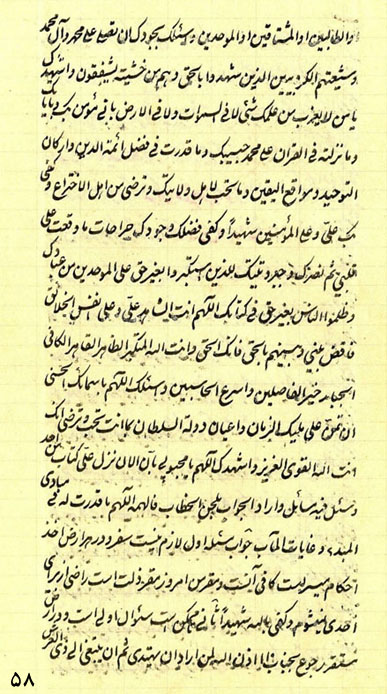 والطالبین او المشتاقین او الموحدین و اسئلک بجودک ان تصلی علی محمد وآل محمد
وشیعتهم الکروبیین الذین شهدوا بالحق وهم من خشیته یشفقون واشهدک
یا من لا یعزب من علمک شئ لا فی السموات ولا فی الارض بانی مؤمن بک
وما نزلته فی القران علی محمد حبیبک وما قدرت فی فضل ائمة الدین وارکان
التوحید ومواقع الیقین وما تحب لاهل ولایتک وترضی من اهل الاختراع وکفی
بک علی وعلی المؤمنین شهیداً وکفی فضلک وجودک جراحات ما وقعت علی
قلبی ثم نصرک للذین استکبروا بغیر حق علی الموحدین من عبادک
وظلموا الناس بغیر حق فی کتابک اللهم انت الشاهد علی وعلی نفس الخلائق
فاقض بینی وبینهم بالحق فانک الحق وانت الله المتکبر الظاهر القاهر الکافی
خیر الفاصلین واسرع الحاسبین واسئلک اللهم باسمائک الحسنی
ان تمنن علی ملیک الزمان واعیان دولة السلطان کما انت تحب وترضی انک
انت الله القوی العزیز واشهدک اللهم یا محبوبی بان الان نزل علی کتاب من احد
وسئل فیه مسائل واراد الجواب الخطاب فالهمه اللهم ما قدرت له فی مبادی
وغایات المآب جواب مسئله اول لازم نیست سفر ودر هر ارض اخذ
احکام میسر است کافی است وسفر من امروز سفر ذلت است راضی از برای
احدی نمیشوم وکفی بالله شهیداً ثانی ممکن است سؤال اولی است و در ارض
مستقر رجوع بجناب اذن الله لمن اراد ان یهتدی ثم ان ینبغی الی ذی العرش
۵۸